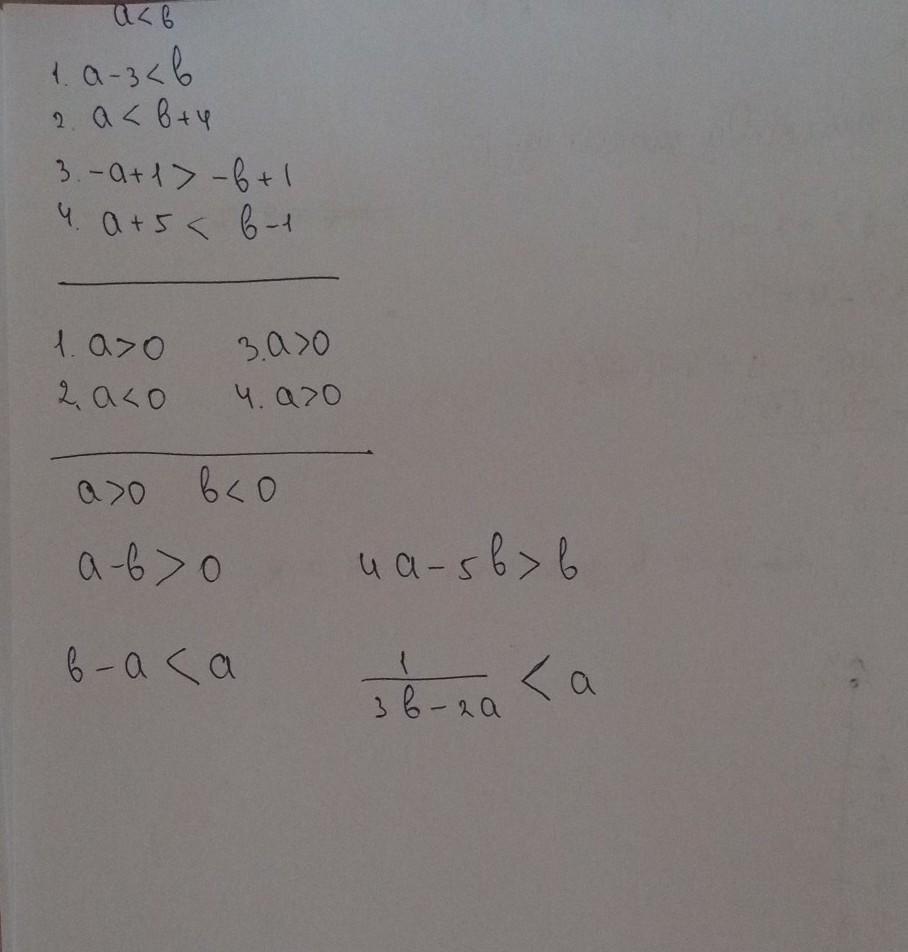 a < в
1. a - 3 < в
2. a < в + 4
3. -a + 1 > -в + 1
4. a + 5 < в - 1
1. a > 0 3. a > 0
2. a < 0 4. a > 0
a > 0 в < 0
a - в > 0 4a - 5в > в
в - a < a 1/(3в - 2a) < a